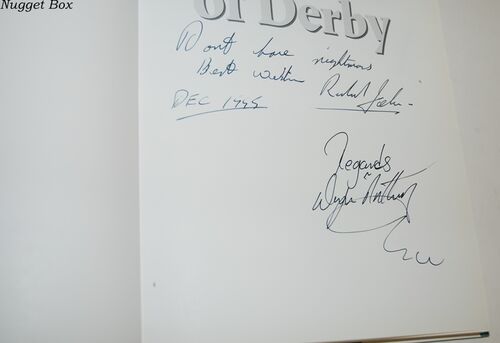 Nugget Box
of Derby
Don't have nightmares
Best wishes
DEC 1995
Regards
Wayne Anthony